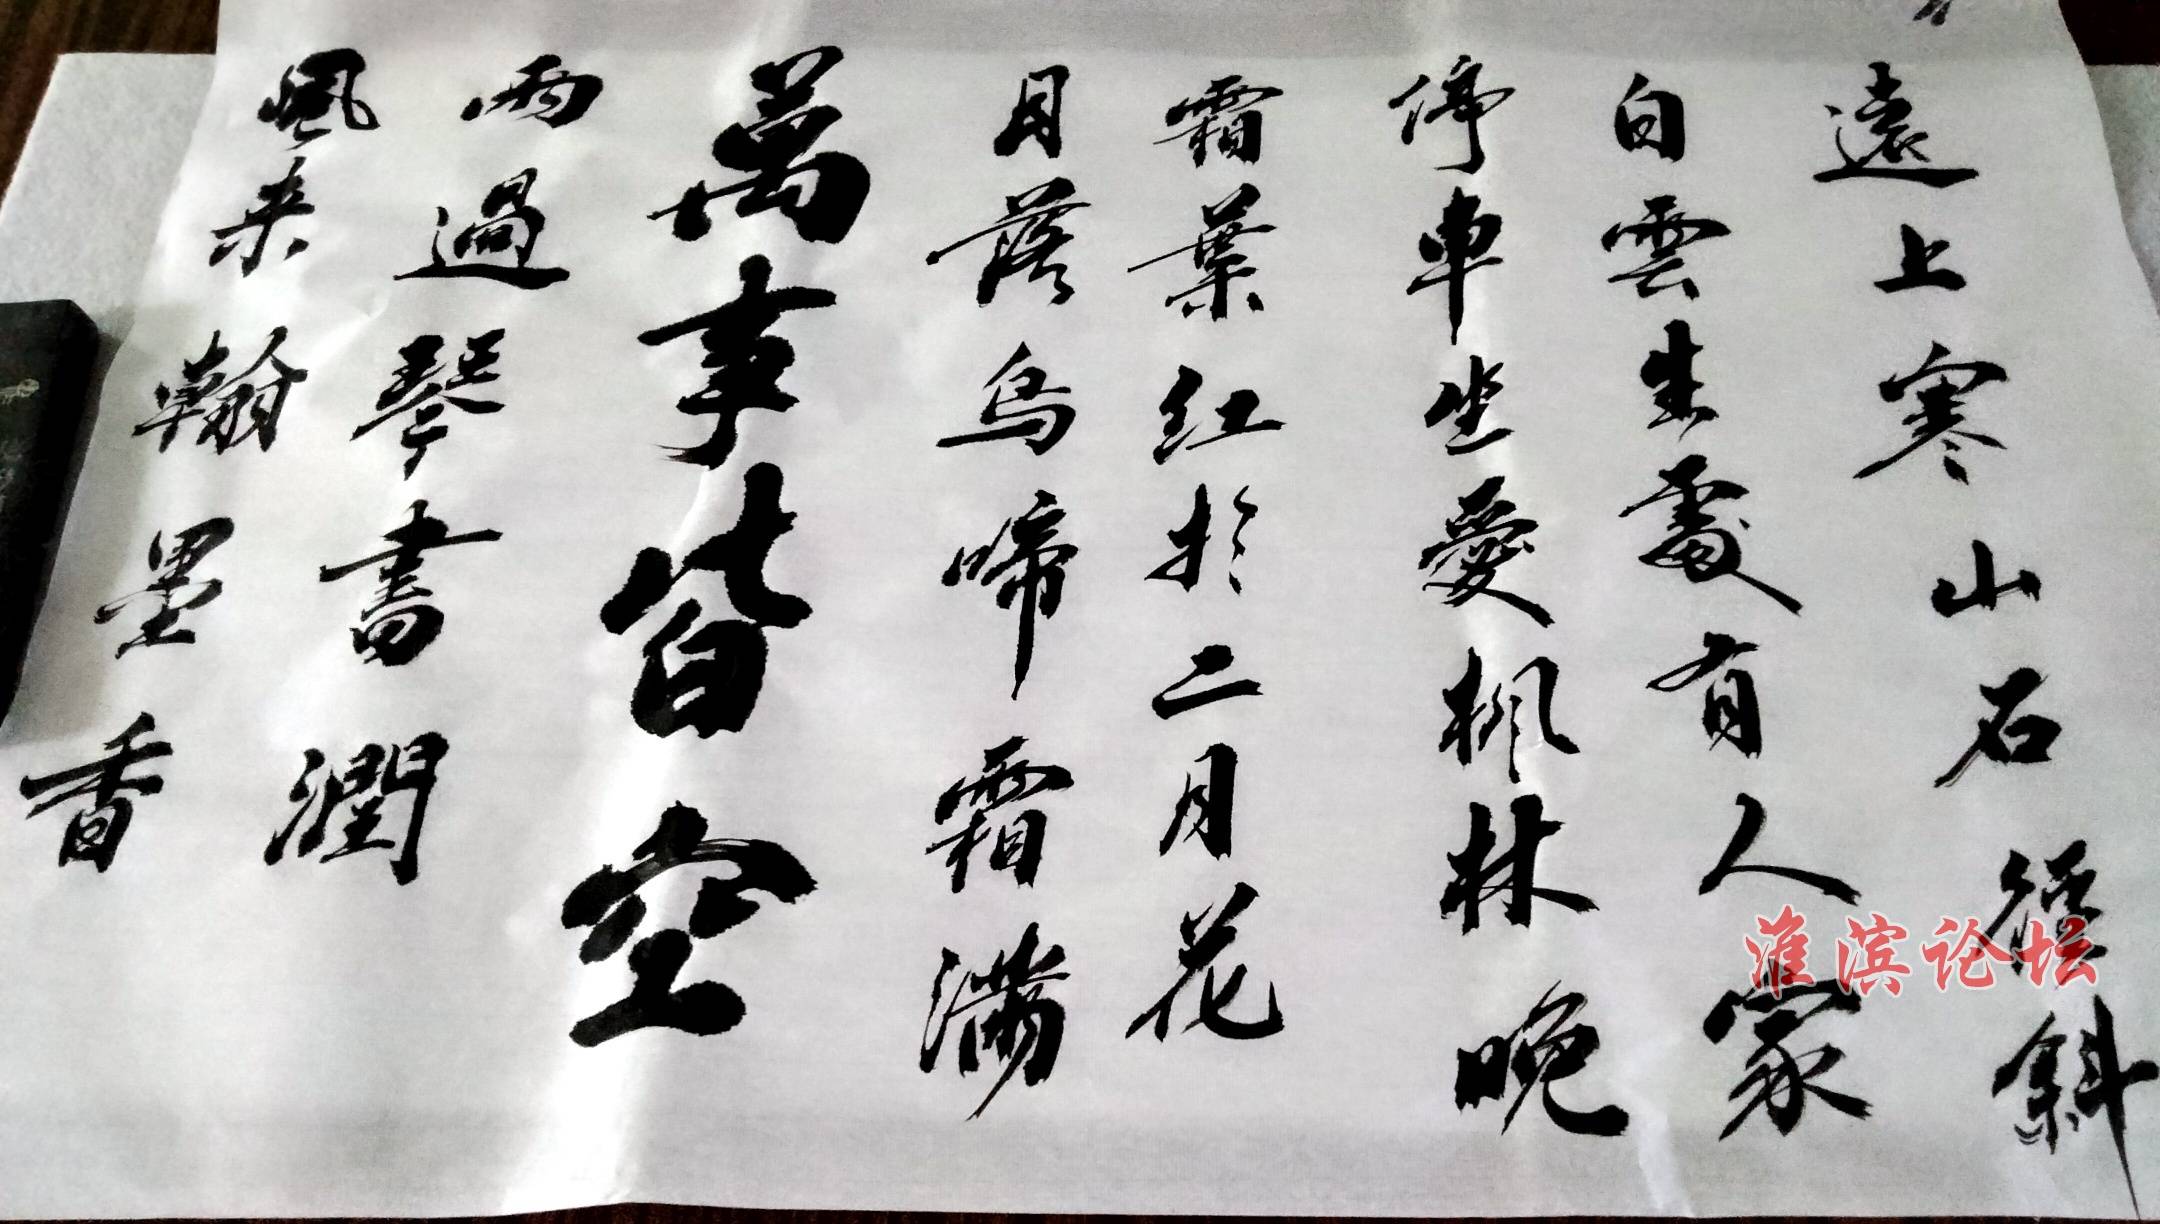 遠上寒山石徑斜
白雲生處有人家
停車坐愛楓林晚
霜葉紅於二月花
月落烏啼霜滿
萬事皆空
雨過琴書潤
風来翰墨香
淮滨论坛